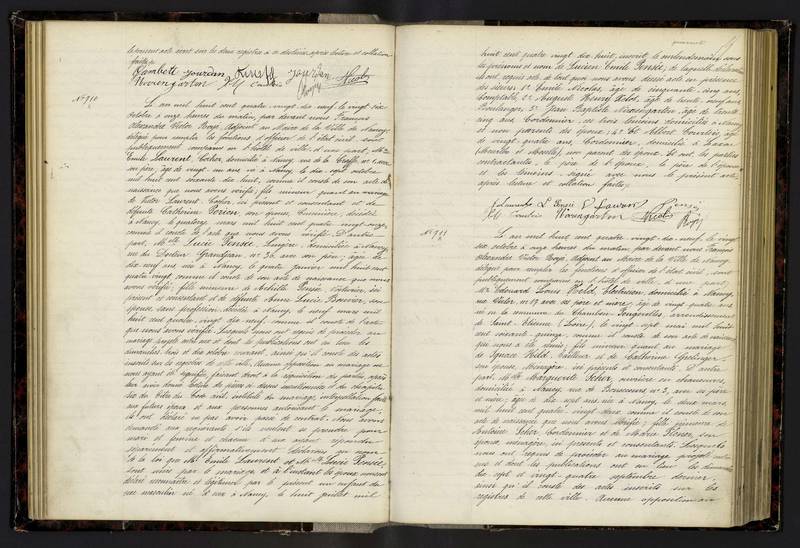 le présent acte avant sur les deux registres à ce destinés, après lecture et collation
faites.
Jourdan
Weemgarten
Nicolas
Royé
N° 910
L'an mil huit cent quatre vingt dix neuf, le vingt six
octobre à onze heures du matin, par devant nous François
Alexandre Victor Royé, adjoint au Maire de la Ville de Nancy,
délégué pour remplir les fonctions d'officier de l'état civil, sont
publiquement comparus en l'hôtel de ville, d'une part, Mr
Émile Laurent, Cocher, domicilié à Nancy, rue de la
son père, âgé de vingt un ans, né à Nancy, le dix sept octobre
mil huit cent soixante dix huit, comme il conste de son acte de
naissance que nous avons vérifié; fils mineur quant au mariage
de Victor Laurent, Cocher, ici présent et consentant et de
défunte Catherine son épouse, décédée
à Nancy, le quatorze mars mil huit cent quatre vingt onze,
comme il conste de l'acte que nous avons vérifié. D'autre
part, Mlle Lucie Pensée, Lingère, domiciliée à Nancy,
rue du Docteur Grandjean, n° 36, avec son père; âgée de
dix neuf ans, née à Nancy, le quatre janvier mil huit cent
quatre vingt, comme il conste de son acte de naissance que nous
avons vérifié; fille mineure de Achille Pensée, ici
présent et consentant et de défunte Anne Lucie Bouvier, son
épouse, sans profession, décédée à Nancy, le neuf mars mil
huit cent quatre vingt dix neuf, comme il conste de l'acte
que nous avons vérifié. Lesquels nous ont requis de procéder au
mariage projeté entre eux et dont les publications ont eu lieu les
dimanches huit et dix octobre courant, ainsi qu'il conste des actes
inscrits sur les registres de cette ville. Aucune opposition au mariage ne
nous ayant été signifiée, faisant droit à la réquisition des parties, après
leur avoir donné lecture des pièces ci-dessus mentionnées et du chapitre
six du titre du Code civil, intitulé du mariage, interpellation faite
aux futurs époux et aux personnes autorisant le mariage,
ils ont déclaré ne pas avoir passé de contrat. Nous avons
demandé aux requérants s'ils veulent se prendre pour
mari et femme et chacun d'eux ayant répondu
séparément et affirmativement, déclarons au nom
de la loi que Mr Émile Laurent et Mlle Lucie Pensée
sont unis par le mariage et à l'instant les époux
déclaré reconnaître et légitimer par le présent un enfant de
sexe masculin né à Nancy, le huit juillet mil
huit cent quatre vingt dix huit, inscrit le surlendemain sous
les prénoms et nom de Lucien Émile Pensée; de laquelle
ils ont requis acte. De tout quoi nous avons dressé acte en présence
des sieurs 1° Émile Nicolas, âgé de cinquante cinq ans,
Comptable, 2° Auguste Henry âgé de trente neuf ans,
Boulanger, 3° Jean Baptiste Weemgarten, âgé de trente
ans, Cordonnier, ces trois témoins domiciliés à Nancy
et non parents des époux; 4° et Albert âgé
de vingt quatre ans, Cordonnier, domicilié à Laxou
(Meurthe et Moselle), non parent des époux. Et ont, les parties
contractantes, le père de l'époux, le père de l'épouse
et les témoins, signé avec nous le présent acte,
après lecture et collation faites.
Laurent L. Pensée
Weemgarten Nicolas Royé
N° 911
L'an mil huit cent quatre vingt dix neuf, le vingt
six octobre à onze heures du matin, par devant nous François
Alexandre Victor Royé, adjoint au Maire de la Ville de Nancy,
délégué pour remplir les fonctions d'officier de l'état civil, sont
publiquement comparus en l'hôtel de ville, d'une part,
Mr Édouard Louis Held, Électricien, domicilié à Nancy,
rue n° 19 avec ses père et mère; âgé de vingt quatre ans,
né en la commune du Chambon Feugerolles, arrondissement
de Saint-Étienne (Loire), le vingt sept mai mil huit
cent soixante quinze, comme il conste de son acte de naissance
que nous a été remis; fils mineur quant au mariage
de Ignace Held, et de Catherine
son épouse, Ménagère, ici présents et consentants. D'autre
part, Mlle Marguerite Scher, ouvrière en chaussures,
domiciliée à Nancy, rue n° 3, avec ses père
et mère; âgée de dix sept ans, née à Nancy, le deux mars
mil huit cent quatre vingt deux, comme il conste de son
acte de naissance que nous avons vérifié; fille mineure de
Antoine Scher, Cordonnier et de Marie son
épouse, ménagère, ici présents et consentants. Lesquels
nous ont requis de procéder au mariage projeté entre
eux et dont les publications ont eu lieu les dimanches
dix sept et vingt quatre septembre dernier,
ainsi qu'il conste des actes inscrits sur les
registres de cette ville. Aucune opposition au